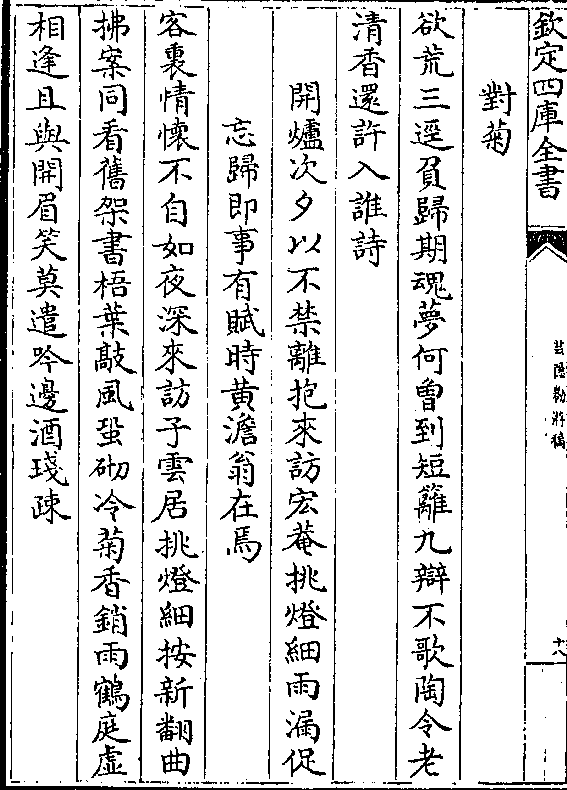 欽定四庫全書
對菊
欲荒三逕負歸期魂夢何曾到短籬九辯不歌陶令老
清香還許入誰詩
開爐次夕以不禁離抱來訪宏菴挑燈細雨漏促
忘歸即事有賦時黃澹翁在焉
客裏情懷不自如夜深來訪子雲居挑燈細按新翻曲
拂案同看舊架書梧葉敲風蛩砌冷菊香銷雨鶴庭虛
相逢且與開眉笑莫遣吟邊酒琖疎
芸隱勌游稿
十八